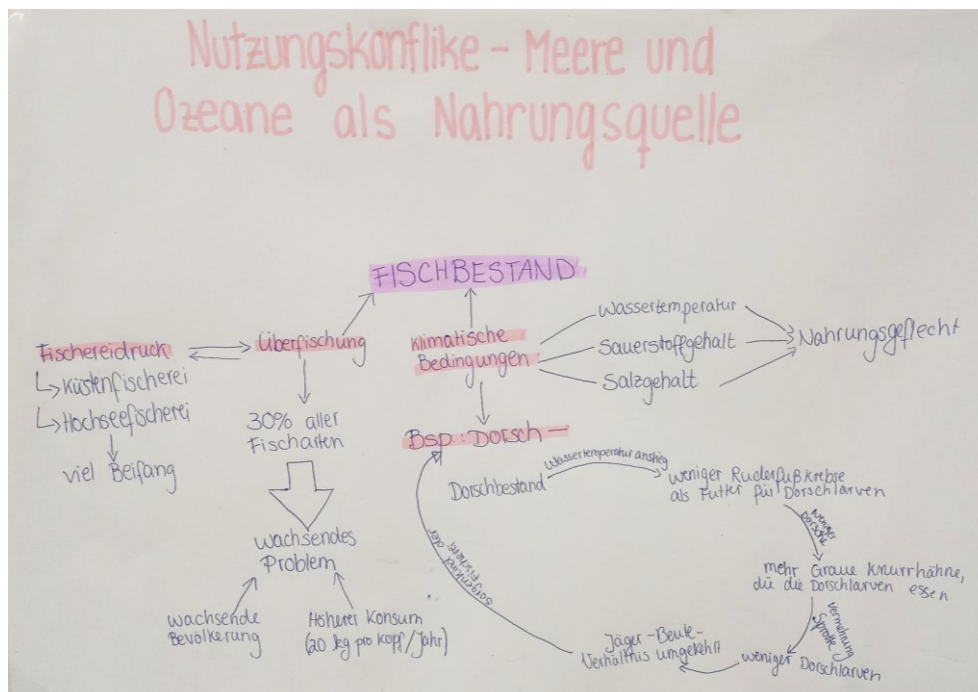 Nutzungskonflike - Meere und
Ozeane als Nahrungsquelle
FISCHBESTAND
Fischereidruck
↳ Küstenfischerei
↳ Hochseefischerei
viel Beifang
Überfischung
30% aller
Fischarten
wachsendes
Problem
wachsende
Bevölkerung
Höherer Konsum
(20 kg pro Kopf/Jahr)
klimatische
Bedingungen
Wassertemperatur
Sauerstoffgehalt
Salzgehalt
Nahrungsgeflecht
Bsp.: Dorsch -
Dorschbestand
Wassertemperatur anstieg
weniger Ruderfußkrebse
als Futter für Dorschlarven
weniger
Dorsche
mehr Graue Knurrhähne,
die die Dorschlarven essen
Vermehrung
Sprotte
weniger Dorschlarven
Jäger-Beute-
Verhältnis umgekehrt
Sorgenkind der
Fischerei